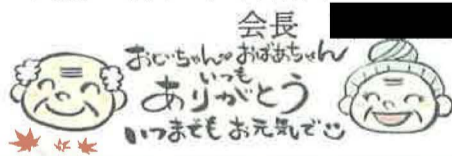 会長
おじいちゃん おばあちゃん
いつも
ありがとう
いつまでもお元気で